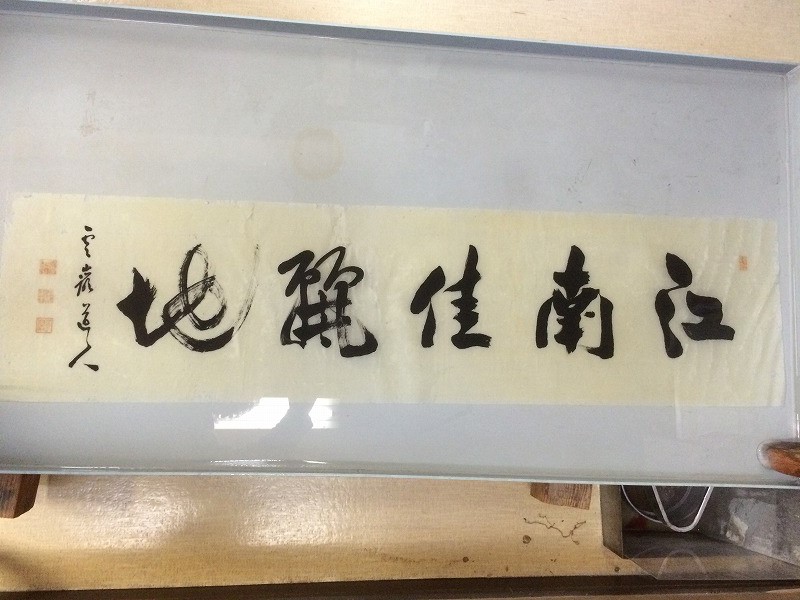 江南佳麗地
雲巖道人